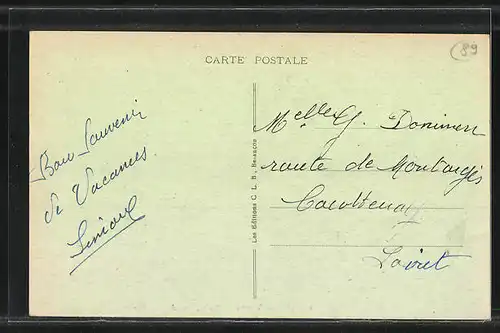 CARTE POSTALE
89
Bon Souvenir
de Vacances
Les Editions C. L. B., Besançon
Melle G.
route de Montargis
Courtenay
Loiret